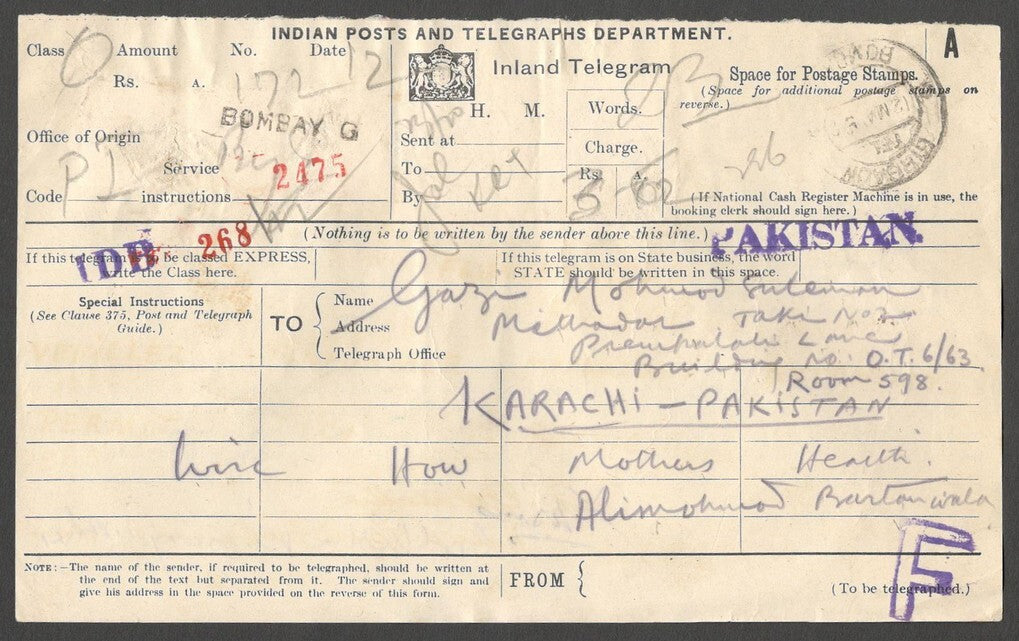 INDIAN POSTS AND TELEGRAPHS DEPARTMENT.
A
Class O Amount No. Date
Rs. A. 172 12
Inland Telegram
Space for Postage Stamps.
(Space for additional postage stamps on
reverse.)
BOMBAY G
H. M.
Words.
Office of Origin
Sent at
Charge.
Service
2475
To
Rs. A.
Code instructions
By
(If National Cash Register Machine is in use, the
booking clerk should sign here.)
268
(Nothing is to be written by the sender above this line.)
PAKISTAN.
If this telegram is to be classed EXPRESS,
write the Class here.
If this telegram is on State business, the word
STATE should be written in this space.
Special Instructions
(See Clause 375, Post and Telegraph
Guide.)
TO
Name Gazi Mohmod Suleman
Address Mithadar Taki No 2
Telegraph Office
Lane
Building No. O.T. 6/63
Room 598.
KARACHI - PAKISTAN
Wire How Mothers Health.
Alimohmod Bartanwala
NOTE:—The name of the sender, if required to be telegraphed, should be written at
the end of the text but separated from it. The sender should sign and
give his address in the space provided on the reverse of this form.
FROM
(To be telegraphed.)
F